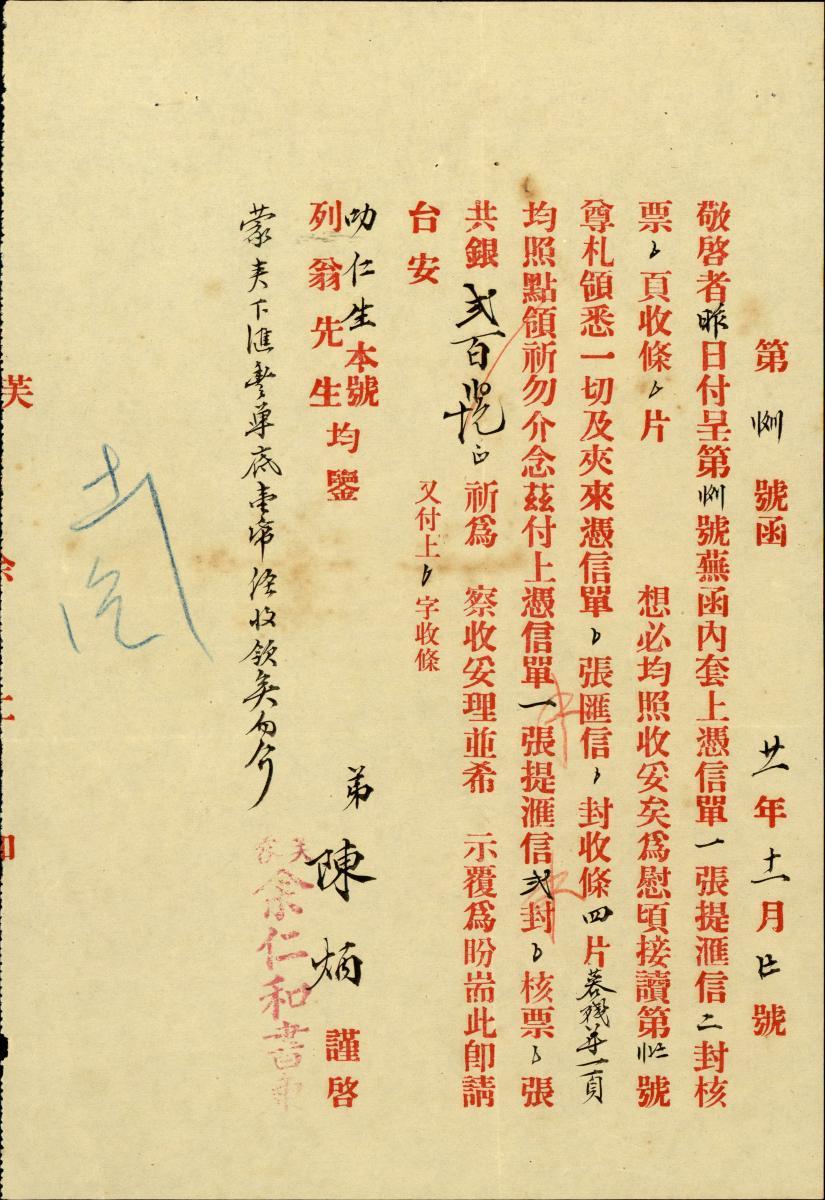 第 號函 廿一年十一月 號
敬啓者昨日付呈第 號蕪函內套上憑信單一張提滙信二封核
票 頁收條 片 想必均照收妥矣爲慰頃接讀第 號
尊札領悉一切及夾來憑信單 張匯信 封收條四片 一頁
均照點領祈勿介念茲付上憑信單一張提滙信弍封 核票 張
共銀弍百 正祈爲 察收妥理並希 示覆爲盼耑此卽請
台安 又付上 字收條
叻仁生本號
列翁先生均鑒
弟陳炳謹啓
蒙夫下滙 單底壹 收領矣勿介
芙蓉
余仁和書柬
芙 余 仁 和